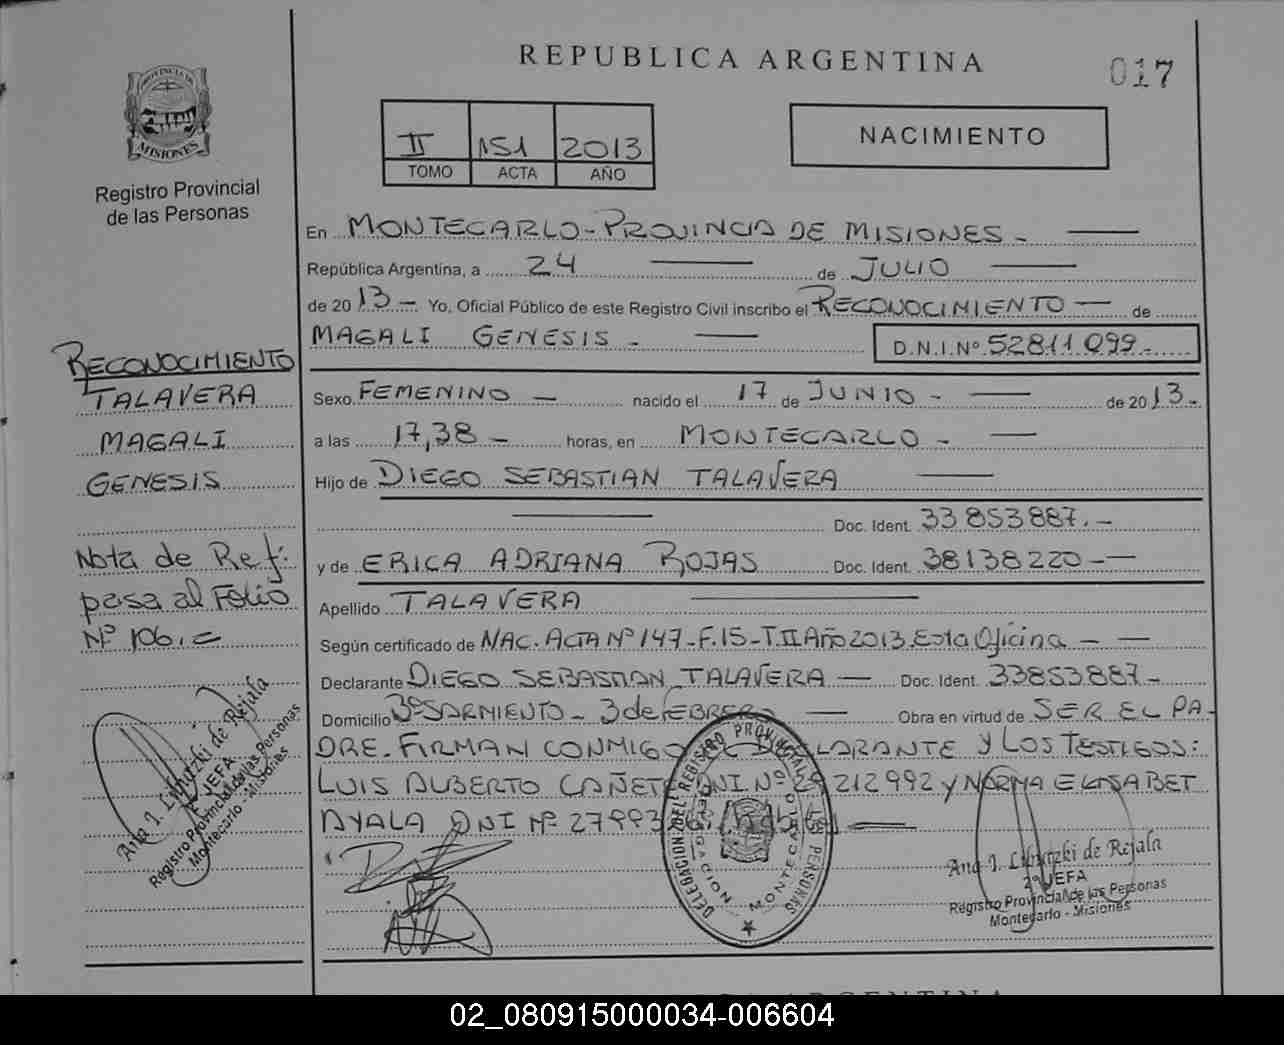 REPUBLICA ARGENTINA
017
PROVINCIA DE
MISIONES
Registro Provincial
de las Personas
II 151 2013
TOMO ACTA AÑO
NACIMIENTO
En MONTECARLO - PROVINCIA DE MISIONES -
República Argentina, a 24 de JULIO
de 2013 - Yo, Oficial Público de este Registro Civil inscribo el RECONOCIMIENTO de
MAGALI GENESIS - D.N.I.Nº 52811099 -
Sexo FEMENINO - nacido el 17 de JUNIO - de 2013 -
a las 17,38 - horas, en MONTECARLO -
Hijo de DIEGO SEBASTIAN TALAVERA
Doc. Ident. 33853887.-
y de ERICA ADRIANA ROJAS Doc. Ident. 38138220 -
Apellido TALAVERA
Según certificado de NAC. ACTA Nº 147 - F. 15 - T. II Año 2013. Esta Oficina -
Declarante DIEGO SEBASTIAN TALAVERA Doc. Ident. 33853887 -
Domicilio Bº SARMIENTO - 3 de FEBRERO Obra en virtud de SER EL PA-
DRE. FIRMAN CONMIGO DECLARANTE Y LOS TESTIGOS:
LUIS ALBERTO CAÑETE DNI. Nº 212992 y NORMA ELISABET
AYALA DNI Nº
RECONOCIMIENTO
TALAVERA
MAGALI
GENESIS
Nota de Ref:
pasa al Folio
Nº 106.
Ana I. de Rejala
2º JEFA
Registro Provincial de las Personas
Montecarlo - Misiones
DELEGACION DEL REGISTRO PROVINCIAL DE LAS PERSONAS
DELEGACION MONTECARLO
Ana I. de Rejala
2º JEFA
Registro Provincial de las Personas
Montecarlo - Misiones
02_080915000034-006604